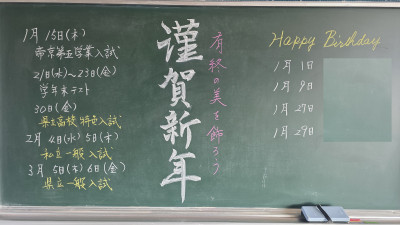 1月15日(木)
帝京第五学業入試
21日(水)～23日(金)
学年末テスト
30日(金)
県立高校 特色入試
2月 4日(水) 5日(木)
私立一般入試
3月 5日(木) 6日(金)
県立一般入試
謹賀新年
有終の美を飾ろう
Happy Birthday
1月 1日
1月 9日
1月 27日
1月 29日